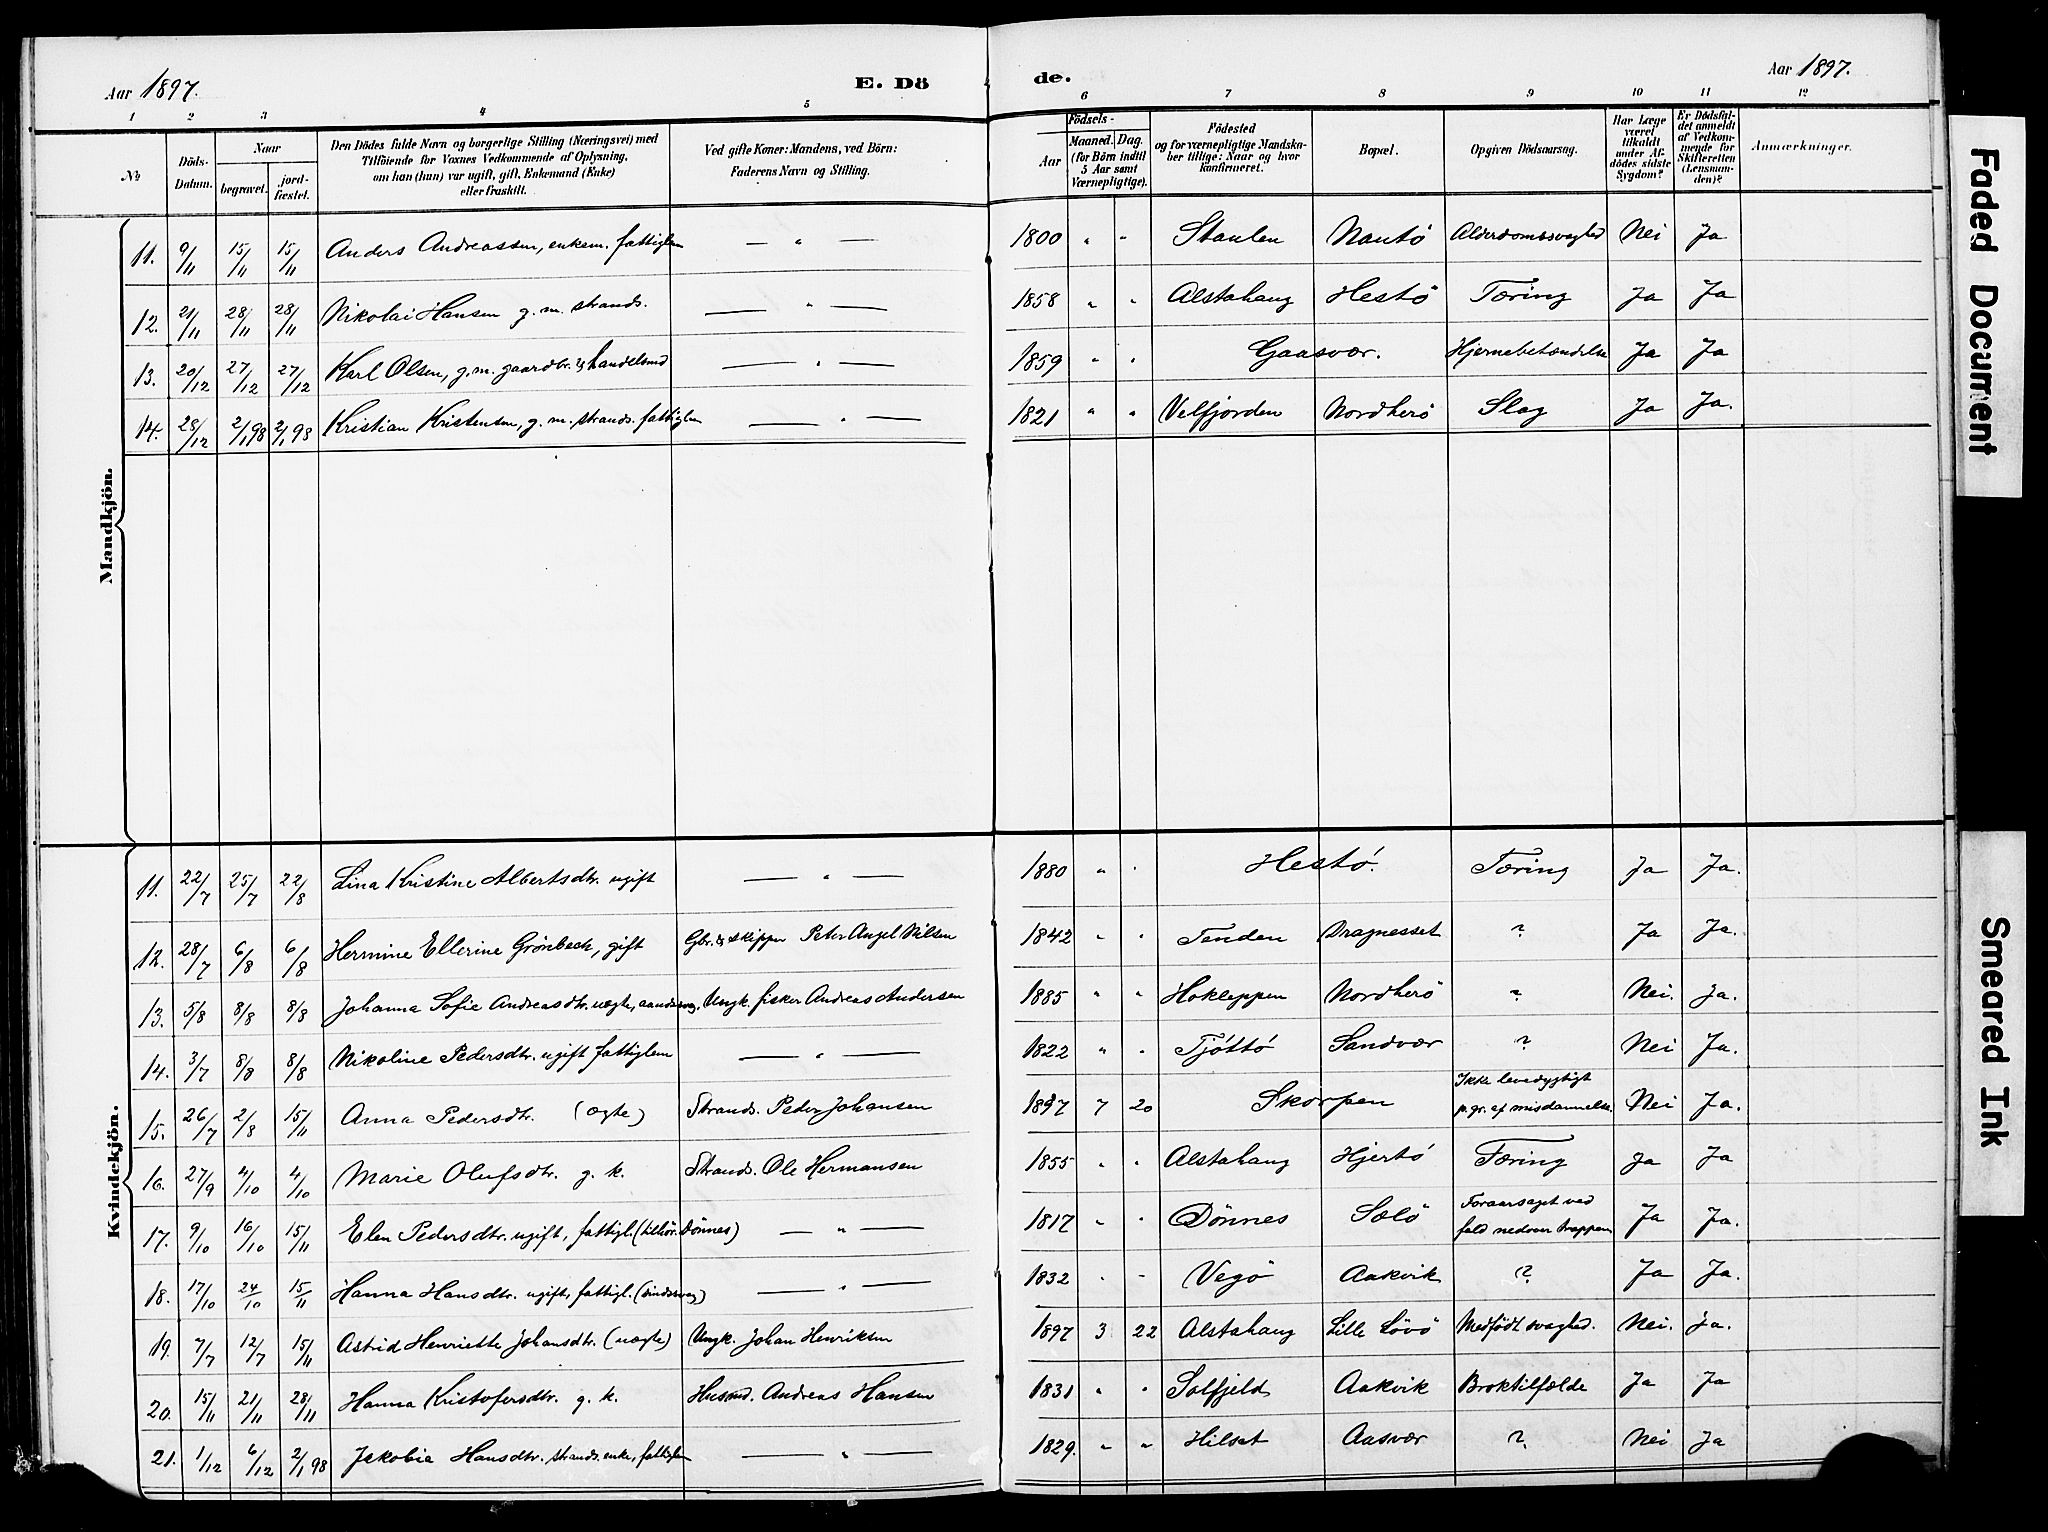 Aar 1897. E. Dö de. Aar 1897.
1 2 3 4 5 6 7 8 9 10 11 12
No
Döds-Datum.
Naar
begravet.
jord-fæstet.
Den Dödes fulde Navn og borgerlige Stilling (Næringsvei) med
Tilföiende for Voxnes Vedkommende af Oplysning,
om han (hun) var ugift, gift, Enkemand (Enke)
eller fraskilt.
Ved gifte Koner: Mandens, ved Börn:
Faderens Navn og Stilling.
Födsels-
Aar
Maaned. Dag.
(for Börn indtil
5 Aar samt
Værnepligtige).
Födested
og for værnepligtige Mandska-
ber tillige: Naar og hvor
konfirmeret.
Bopæl.
Opgiven Dödsaarsag.
Har Læge
været
tilkaldt
under Af-
dödes sidste
Sygdom?
Er Dödsfal-
det anmeldt
af Vedkom-
mende for
Skifteretten
(Lensman-
den)?
Anmærkninger.
Mandkjön.
11. 9/11 15/11 15/11 Anders Andreassen, enkem. fattiglem — " — 1800 " " Staulen Nautö Alderdomssvaghed Nei Ja
12. 21/11 28/11 28/11 Nikolai Hansen g. m. strands. — " — 1858 " " Alstahaug Hestö Tæring Ja Ja
13. 20/12 27/12 27/12 Karl Olsen, g. m. gaardbr. & handelsmd — " — 1859 " " Gaasvær. Hjernebetændelse Ja Ja
14. 28/12 2/1 98 2/1 98 Kristian Kristensen, g. m. strands. fattiglem — " — 1821 " " Velfjorden Nordherö Slag Ja Ja.
Kvindekjön.
11. 22/7 25/7 22/8 Lina Kristine Albertsdtr. ugift — " — 1880 " " Hestö. Tæring Ja Ja.
12. 28/7 6/8 6/8 Hermine Ellerine Grönbeck, gift Gbr. & skipper Peter Angel Nilsen 1842 " " Tenden Dragnesset ? Ja Ja.
13. 5/8 8/8 8/8 Johanna Sofie Andreasdtr. uægte, aandssvag. Ungk. fisker Andreas Andersen 1885 " " Hokleppen Nordherö ? Nei. Ja.
14. 3/7 8/8 8/8 Nikoline Pedersdtr. ugift fattiglem — " — 1822 " " Tjöttö Sandvær ? Nei Ja.
15. 26/7 2/8 15/11 Anna Pedersdtr. (ægte) Strands. Peder Johansen 1897 7 20 Skorpen Ikke levedygtigt
p. gr. af misdannelse. Nei Ja.
16. 27/9 4/10 4/10 Marie Olufsdtr. g. k. Strands. Ole Hermansen 1855 " " Alstahaug Hjertö Tæring Ja Ja
17. 9/10 16/10 15/11 Elen Pedersdtr. ugift, fattigl. (tilhör. Dönnes) — " — 1817 " " Dönnes Solö Foraarsaget ved
fald nedover trappen Ja Ja.
18. 17/10 24/10 15/11 Hanna Hansdtr. ugift, fattigl. (sindssvag) — " — 1832 " " Vegö Aakvik ? Ja Ja.
19. 7/7 12/7 15/11 Astrid Henriette Johansdtr. (uægte) Ungk. Johan Henriksen 1897 3 22 Alstahaug Lille Lövö Medfödt svaghed. Nei. Ja.
20. 15/11 21/11 28/11 Hanna Kristofersdtr. g. k. Husmd. Andreas Hansen 1831 " " Solfjeld Aakvik Broktilfælde Ja Ja
21. 1/12 6/12 2/1 98 Jakobia Hansdtr. strands. enke, fattiglem — " — 1829. " " Hilset Aasvær ? Nei Ja
Faded Document
Smeared Ink